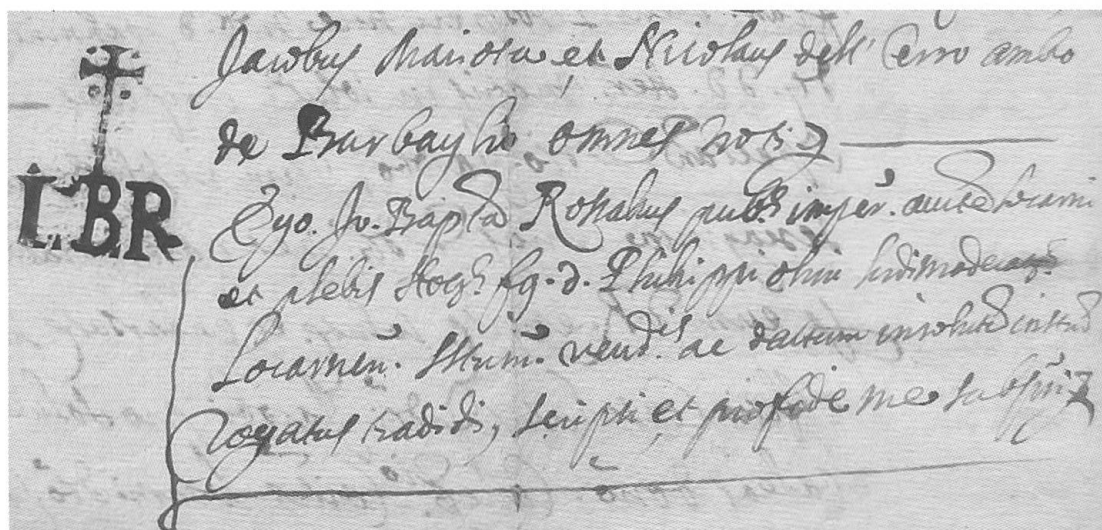 Jacobus Mariota et Nicolaus dell' Cerro ambo
de Burbaglio omnes noti
I.BR
Ego. Jo. Bapta Rosalius pubs imper. aucte Locarni
et plebis Nots. fq. d. Philippi olim
Locarnen. Instrum. vendis ac datum insolutu
rogatus tradidi, scripsi et pro fide me subscri